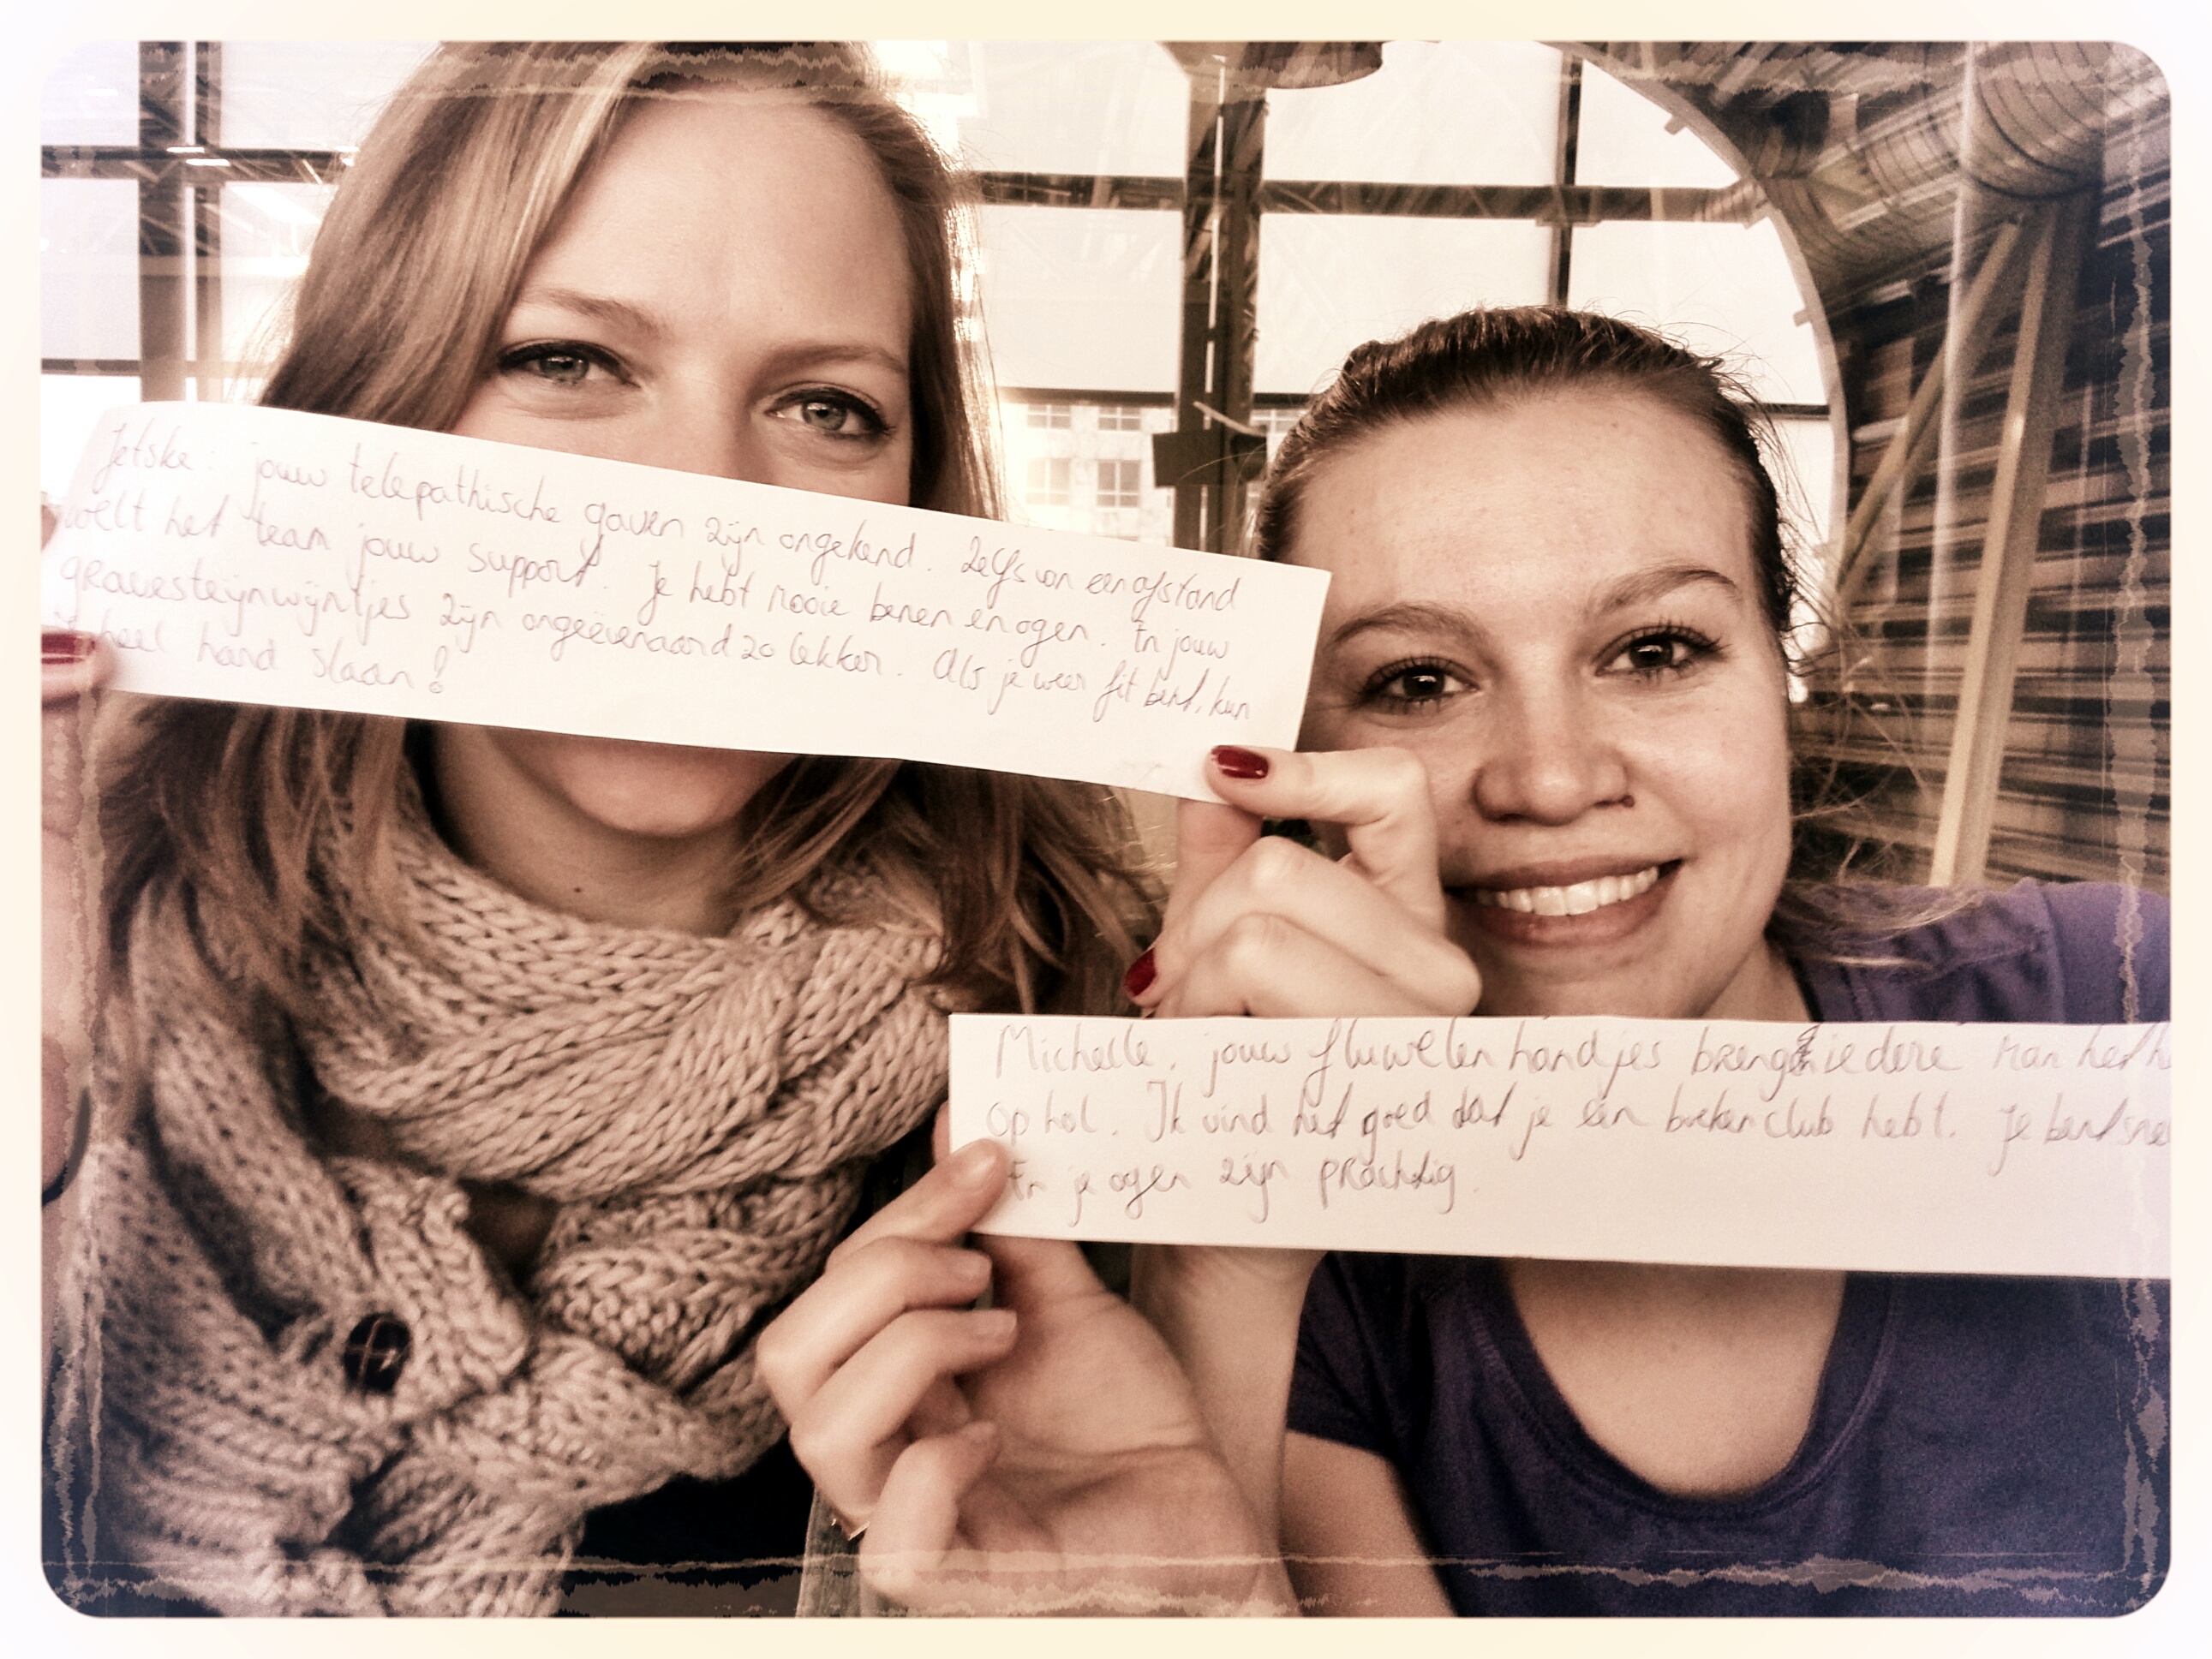 Jetske: jouw telepathische gaven zijn ongekend. Zelfs van een afstand
voelt het team jouw support. Je hebt mooie benen en ogen. En jouw
gravesteijnwijntjes zijn ongeëvenaard zo lekker. Als je weer fit bent, kun
je heel hard slaan!
Michelle, jouw fluwelen handjes brengen iedere man het h
op hol. Ik vind het goed dat je een boekenclub hebt. Je bent sne
En je ogen zijn prachtig.